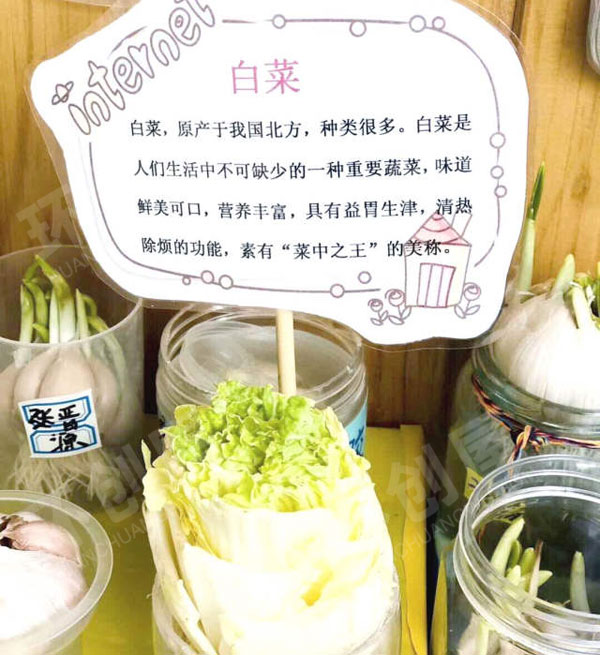 internet
白菜
白菜，原产于我国北方，种类很多。白菜是
人们生活中不可缺少的一种重要蔬菜，味道
鲜美可口，营养丰富，具有益胃生津，清热
除烦的功能，素有“菜中之王”的美称。
张晋源